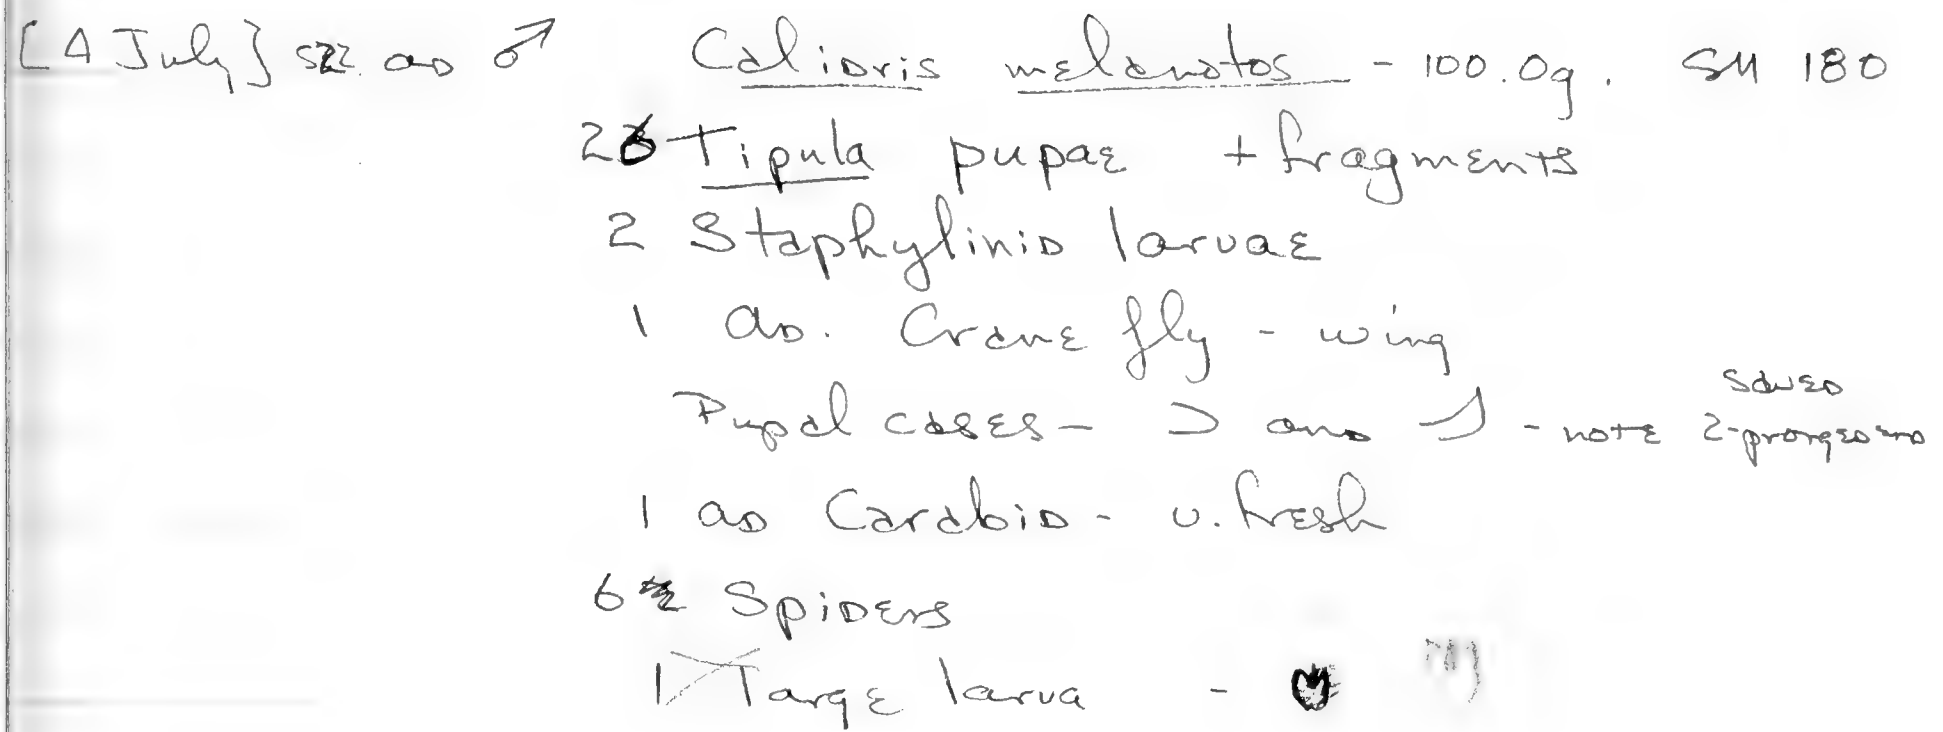 [4 July] 522 ad ♂ Calidris melanotos - 100.0g. SM 180
26 Tipula pupae + fragments
2 Staphylinid larvae
1 ad. Crane fly - wing
Pupal cases - and - note saved 2-pronged end
1 ad Carabid - v. fresh
6 Spiders
1 Large larva -